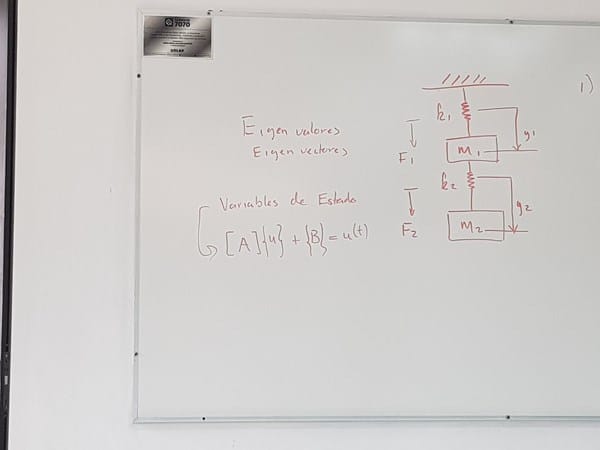 7070
Eigen valores
Eigen vectores
Variables de Estado
[A]{u} + {B} = u(t)
k1
F1
m1
y1
k2
F2
m2
y2
1)